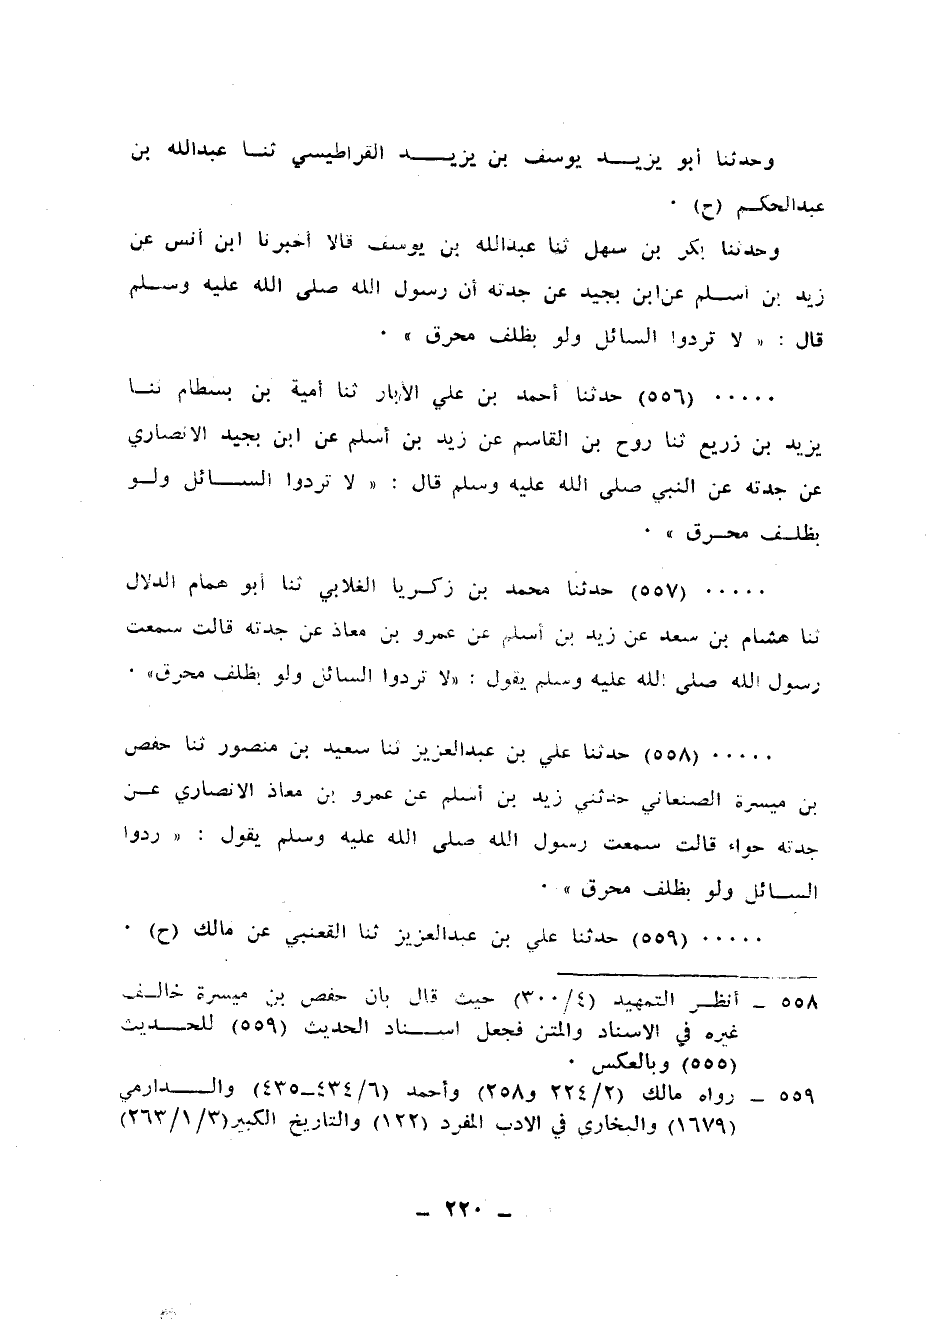 وحدثنا أبو يزيد يوسف بن يزيد القراطيسي ثنا عبدالله بن
عبدالحكم (ح) ٠
وحدثنا بكر بن سهل ثنا عبدالله بن يوسف قالا أخبرنا ابن أنس عن
زيد بن أسلم عن ابن بجيد عن جدته أن رسول الله صلى الله عليه وسلم
قال : « لا تردوا السائل ولو بظلف محرق » ٠
٠٠٠٠٠ (٥٥٦) حدثنا أحمد بن علي الأبار ثنا أمية بن بسطام ثنا
يزيد بن زريع ثنا روح بن القاسم عن زيد بن أسلم عن ابن بجيد الانصاري
عن جدته عن النبي صلى الله عليه وسلم قال : « لا تردوا السائل ولو
بظلف محرق » ٠
٠٠٠٠٠ (٥٥٧) حدثنا محمد بن زكريا الغلابي ثنا أبو همام الدلال
ثنا هشام بن سعد عن زيد بن أسلم عن عمرو بن معاذ عن جدته قالت سمعت
رسول الله صلى الله عليه وسلم يقول : «لا تردوا السائل ولو بظلف محرق» ٠
٠٠٠٠٠ (٥٥٨) حدثنا علي بن عبدالعزيز ثنا سعيد بن منصور ثنا حفص
بن ميسرة الصنعاني حدثني زيد بن أسلم عن عمرو بن معاذ الانصاري عن
جدته حواء قالت سمعت رسول الله صلى الله عليه وسلم يقول : « ردوا
السائل ولو بظلف محرق » ٠
٠٠٠٠٠ (٥٥٩) حدثنا علي بن عبدالعزيز ثنا القعنبي عن مالك (ح) ٠
٥٥٨ ـ أنظر التمهيد (٣٠٠/٤) حيث قال بان حفص بن ميسرة خالف
غيره في الاسناد والمتن فجعل اسناد الحديث (٥٥٩) للحديث
(٥٥٥) وبالعكس ٠
٥٥٩ ـ رواه مالك (٢٢٤/٢ و٢٥٨) وأحمد (٤٣٤/٦ـ٤٣٥) والدارمي
(١٦٧٩) والبخاري في الادب المفرد (١٢٢) والتاريخ الكبير(٢٦٣/١/٣)
ـ ٢٢٠ ـ